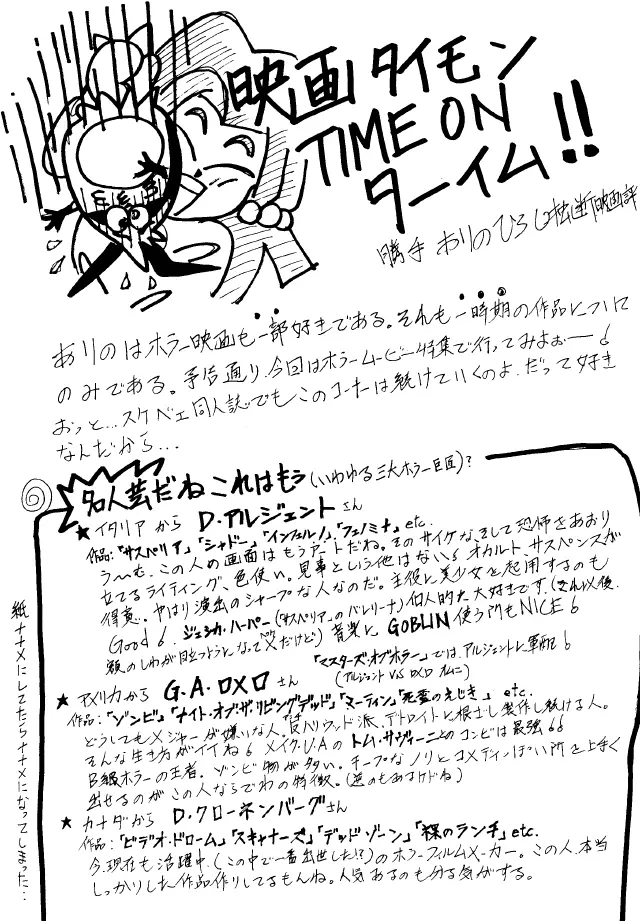 映画タイモン
TIME ON
ターイム!!
勝手 ありのひろし 独断映画評
ありのはホラー映画も一部好きである。それも一時期の作品について
のみである。予告通り、今回はホラームービー特集で行ってみよぉー!
おっと…スケベェ同人誌でもこのコーナーは続けていくのよ、だって好き
なんだから…
名人芸だね これはもう(いわゆる三大ホラー巨匠)?
★イタリアから D・アルジェントさん
作品:「サスペリア」「シャドー」「インフェルノ」「フェノミナ」etc.
う〜む、この人の画面はもうアートだね。そのサイケな、そして恐怖をあおり
立てるライティング、色使い。見事という他はない!オカルト、サスペンスが
得意。やはり演出のシャープな人なのだ。主役に美少女を起用するのも
Good! ジェシカ・ハーパー(「サスペリア」のバレリーナ)個人的に大好きです。(それ以後、
額のしわが目立つようになってダメだけど)音楽に GOBLIN 使う所もNICE!
「マスターズ・オブ・ホラー」では、アルジェントに軍配!
(アルジェント VS ロメロ オムニ)
★アメリカから G.A.ロメロさん
作品:「ゾンビ」「ナイト・オブ・ザ・リビングデッド」「マーティン」「死霊のえじき」etc.
どうしてもメジャーが嫌いな人。反ハリウッド派、デトロイトに根ざし製作し続ける人。
そんな生き方がイイね! メイクU.Aのトム・サヴィーニとのコンビは最強!!
B級ホラーの王者。ゾンビ物が多い。チープなノリとコメディっぽい所を上手く
出せるのがこの人ならでわの特徴。(逆のもあるけどね)
★カナダから D・クローネンバーグさん
作品:「ビデオ・ドローム」「スキャナーズ」「デッドゾーン」「裸のランチ」etc.
今現在も活躍中、(この中で一番出世した!?)のホラーフィルムメーカー。この人、本当
しっかりした作品作りしてるもんね。人気あるのも分る気がする。
紙ナナメにしてたらナナメになってしまった…